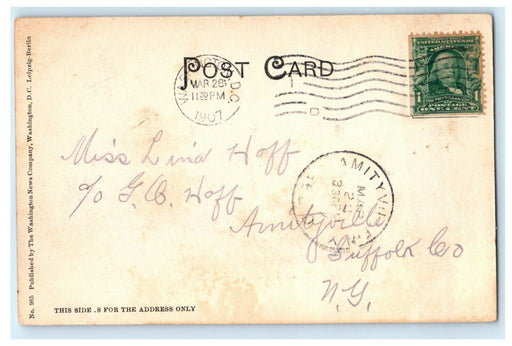 POST CARD
WASHINGTON, D.C.
MAR 26
11 30 PM
1907
D
UNITED STATES OF AMERICA
1
POSTAGE
ONE CENT
Miss Lina Hoff
c/o G. C. Hoff
Amityville
Suffolk Co
N.Y.
AMITYVILLE
MAR
27
THIS SIDE .S FOR THE ADDRESS ONLY
No. 965 Published by The Washington News Company, Washington, D.C. Leipzig-Berlin